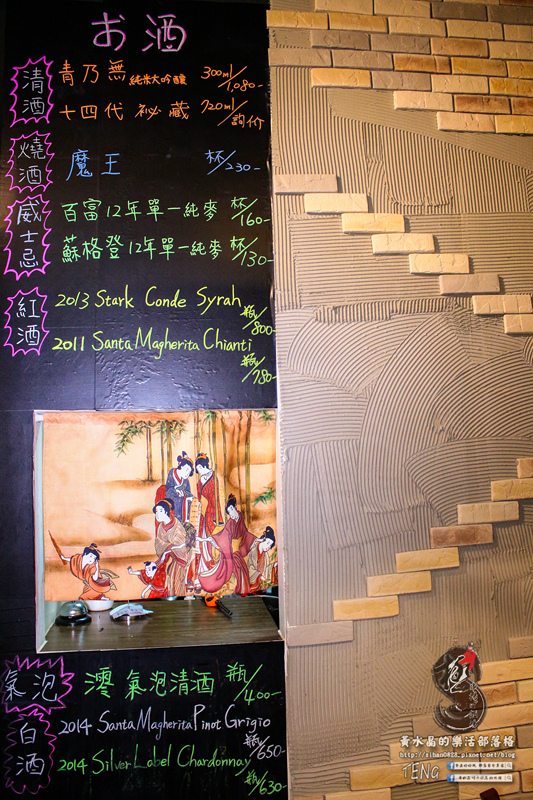 お酒
清酒
青乃無 純米大吟釀 300ml/1,080-
十四代 祕藏 720ml/詢价
燒酒
魔王 杯/230-
威士忌
百富12年單一純麥 杯/160-
蘇格登12年單一純麥 杯/130-
紅酒
2013 Stark Conde Syrah 瓶/800-
2011 Santa Magherita Chianti 瓶/780-
氣泡
澪 氣泡清酒 瓶/400-
白酒
2014 Santa Magherita Pinot Grigio 瓶/650-
2014 Silver Label Chardonnay 瓶/630-
黃水晶的樂活部落格
http://sihan0828.pixnet.net/blog
TENG